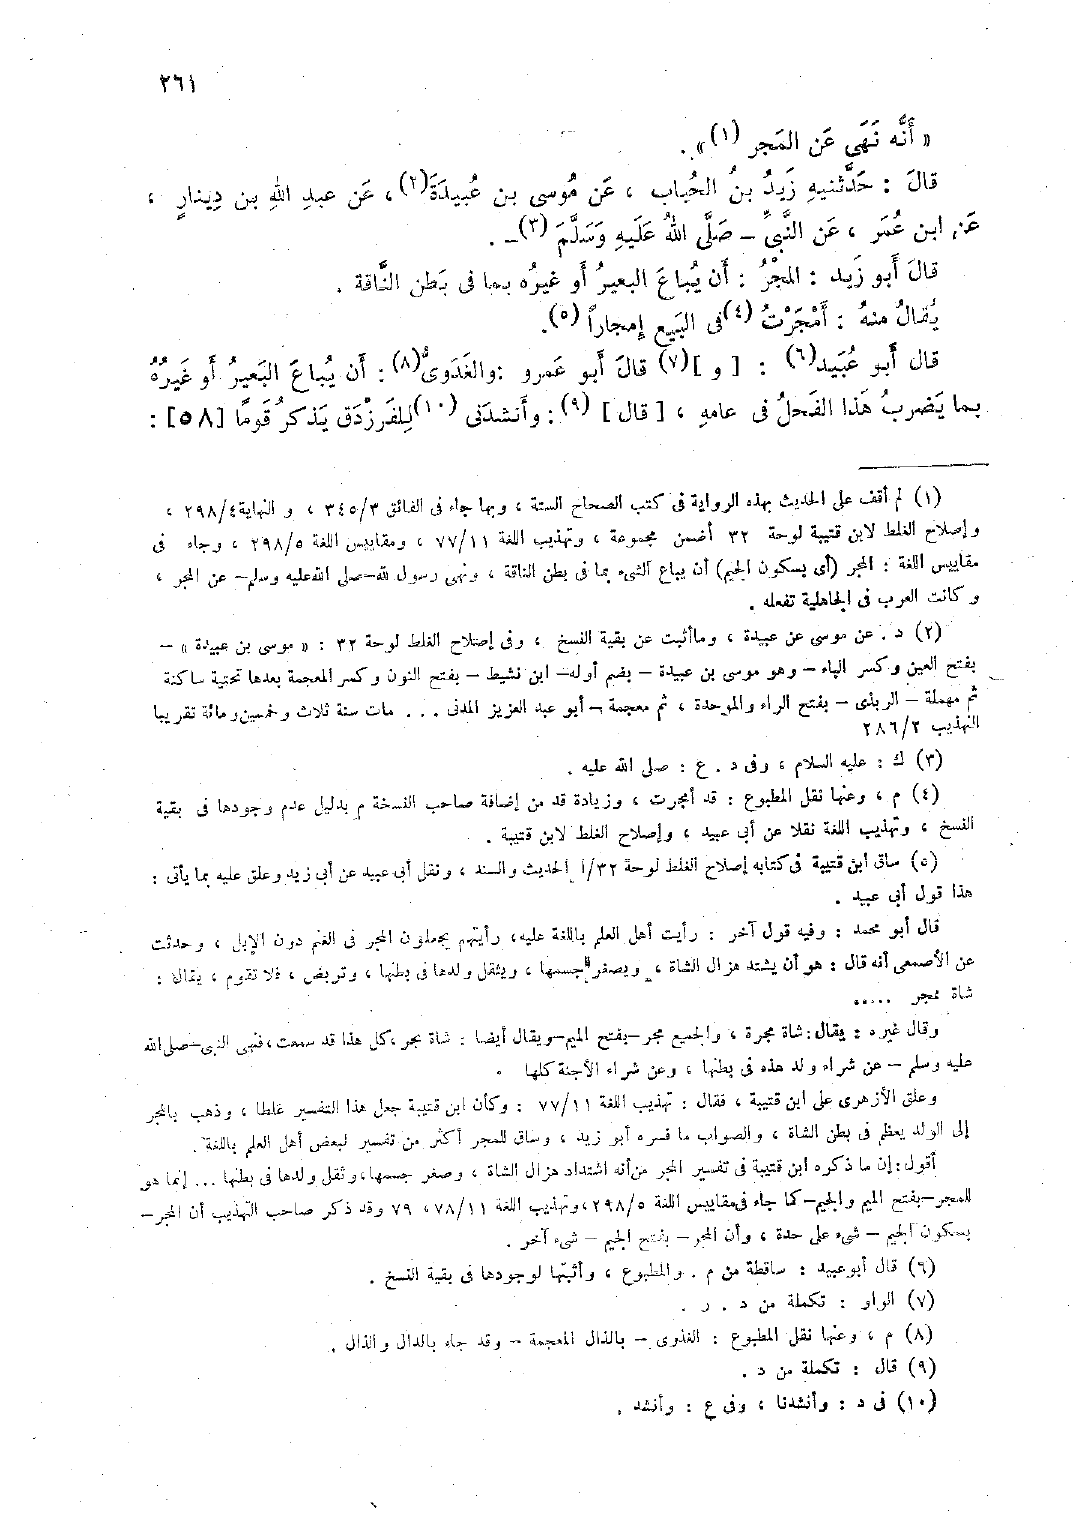 ٢٦١
« أَنَّه نَهَى عَن المَجر (١)» .
قالَ : حَدَّثنيهِ زَيدُ بنُ الحُباب ، عَن مُوسى بن عُبيدَةَ(٢)، عَن عبدِ اللهِ بن دِينارٍ ،
عَن ابن عُمَر ، عَن النَّبىِّ – صَلَّى اللهُ عَلَيهِ وَسَلَّمَ (٣)– .
قالَ أَبو زَيد : المجْرُ : أَن يُباعَ البعيرُ أَو غيرُه بما فى بَطن النَّاقة .
يُقالُ منهُ : أَمْجَرْتُ (٤)فى البَيع إمجاراً (٥).
قال أَبو عُبَيد(٦) : [ و ](٧) قالَ أَبو عَمرو :والغَدَوىُّ(٨): أَن يُباعَ البَعيرُ أَو غَيرُهُ
بما يَضربُ هَذا الفَحلُ فى عامهِ ، [ قال ] (٩): وأَنشدَنى (١٠)لِلفَرزْدَق يَذكرُ قَومًا [٥٨] :
(١) لم أقف على الحديث بهذه الرواية فى كتب الصحاح الستة ، وبها جاء فى الفائق ٣٤٥/٣ ، و النهاية ٢٩٨/٤ ،
وإصلاح الغلط لابن قتيبة لوحة ٣٢ أضمن مجموعة ، وتهذيب اللغة ٧٧/١١ ، ومقاييس اللغة ٢٩٨/٥ ، وجاء فى
مقاييس اللغة : المجر (أى بسكون الجيم) أن يباع الشىء بما فى بطن الناقة ، ونهى رسول لله–صلى الله عليه وسلم– عن المجر ،
وكانت العرب فى الجاهلية تفعله .
(٢) د . عن موسى عن عبيدة ، وماأثبت عن بقية النسخ ، وفى إصلاح الغلط لوحة ٣٢ : « موسى بن عبيدة » –
بفتح العين وكسر الباء – وهو موسى بن عبيدة – بضم أوله– ابن نشيط – بفتح النون وكسر المعجمة بعدها تحتية ساكنة
ثم مهملة – الربذى – بفتح الراء والموحدة ، ثم معجمة – أبو عبد العزيز المدنى ... مات سنة ثلاث وخمسين ومائة تقريبا
التهذيب ٢٨٦/٢
(٣) ك : عليه السلام ، وفى د . ع : صلى الله عليه .
(٤) م ، وعنها نقل المطبوع : قد أمجرت ، وزيادة قد من إضافة صاحب النسخة م بدليل عدم وجودها فى بقية
النسخ ، وتهذيب اللغة نقلا عن أبى عبيد ، وإصلاح الغلط لابن قتيبة .
(٥) ساق ابن قتيبة فى كتابه إصلاح الغلط لوحة ٣٢/أ الحديث والسند ، ونقل أبى عبيد عن أبى زيد وعلق عليه بما يأتى :
هذا قول أبى عبيد .
قال أبو محمد : وفيه قول آخر : رأيت أهل العلم باللغة عليه، رأيتهم يجعلون المجر فى الغنم دون الإبل ، وحدثت
عن الأصمعى أنه قال : هو أن يشتد هزال الشاة ، ويصغر جسمها ، ويثقل ولدها فى بطنها ، وتربض ، فلا تقوم ، يقال :
شاة ممجر .....
وقال غيره : يقال: شاة مجرة ، والجميع مجر–بفتح الميم–ويقال أيضا : شاة بجر ،كل هذا قد سمعت ،فنهى النبى–صلى الله
عليه وسلم – عن شراء ولد هذه فى بطنها ، وعن شراء الأجنة كلها .
وعلق الأزهرى على ابن قتيبة ، فقال : تهذيب اللغة ٧٧/١١ : وكأن ابن قتيبة جعل هذا التفسير غلطا ، وذهب بالمجر
إلى الولد يعظم فى بطن الشاة ، والصواب ما فسره أبو زيد ، وساق للمجر أكثر من تفسير لبعض أهل العلم باللغة .
أقول: إن ما ذكره ابن قتيبة فى تفسير المجر من أنه اشتداد هزال الشاة ، وصغر جسمها، وثقل ولدها فى بطنها ... إنما هو
للمجر–بفتح الميم والجيم–كما جاء فى مقاييس اللغة ٢٩٨/٥ ،وتهذيب اللغة ٧٨/١١، ٧٩ وقد ذكر صاحب التهذيب أن المجر–
بسكون الجيم – شىء على حدة ، وأن المجر – بفتح الجيم – شىء آخر .
(٦) قال أبو عبيد : ساقطة من م . والمطبوع ، وأثبتها لوجودها فى بقية النسخ .
(٧) الواو : تكملة من د . ر .
(٨) م ، وعنها نقل المطبوع : الغذوى – بالذال المعجمة – وقد جاء بالدال والذال .
(٩) قال : تكملة من د .
(١٠) فى د : وأنشدنا ، وفى ع : وأنشد .